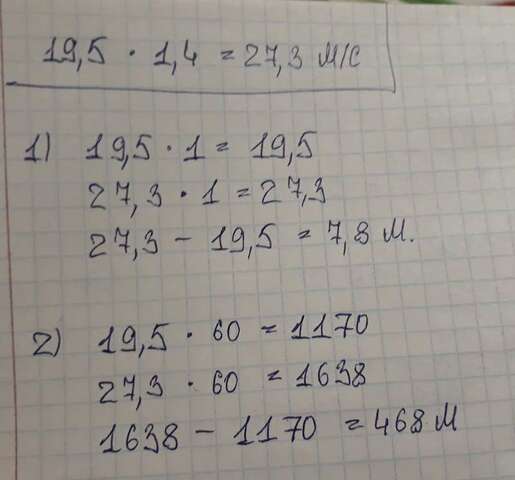 19,5 · 1,4 = 27,3 м/с
1) 19,5 · 1 = 19,5
27,3 · 1 = 27,3
27,3 - 19,5 = 7,8 м.
2) 19,5 · 60 = 1170
27,3 · 60 = 1638
1638 - 1170 = 468 м